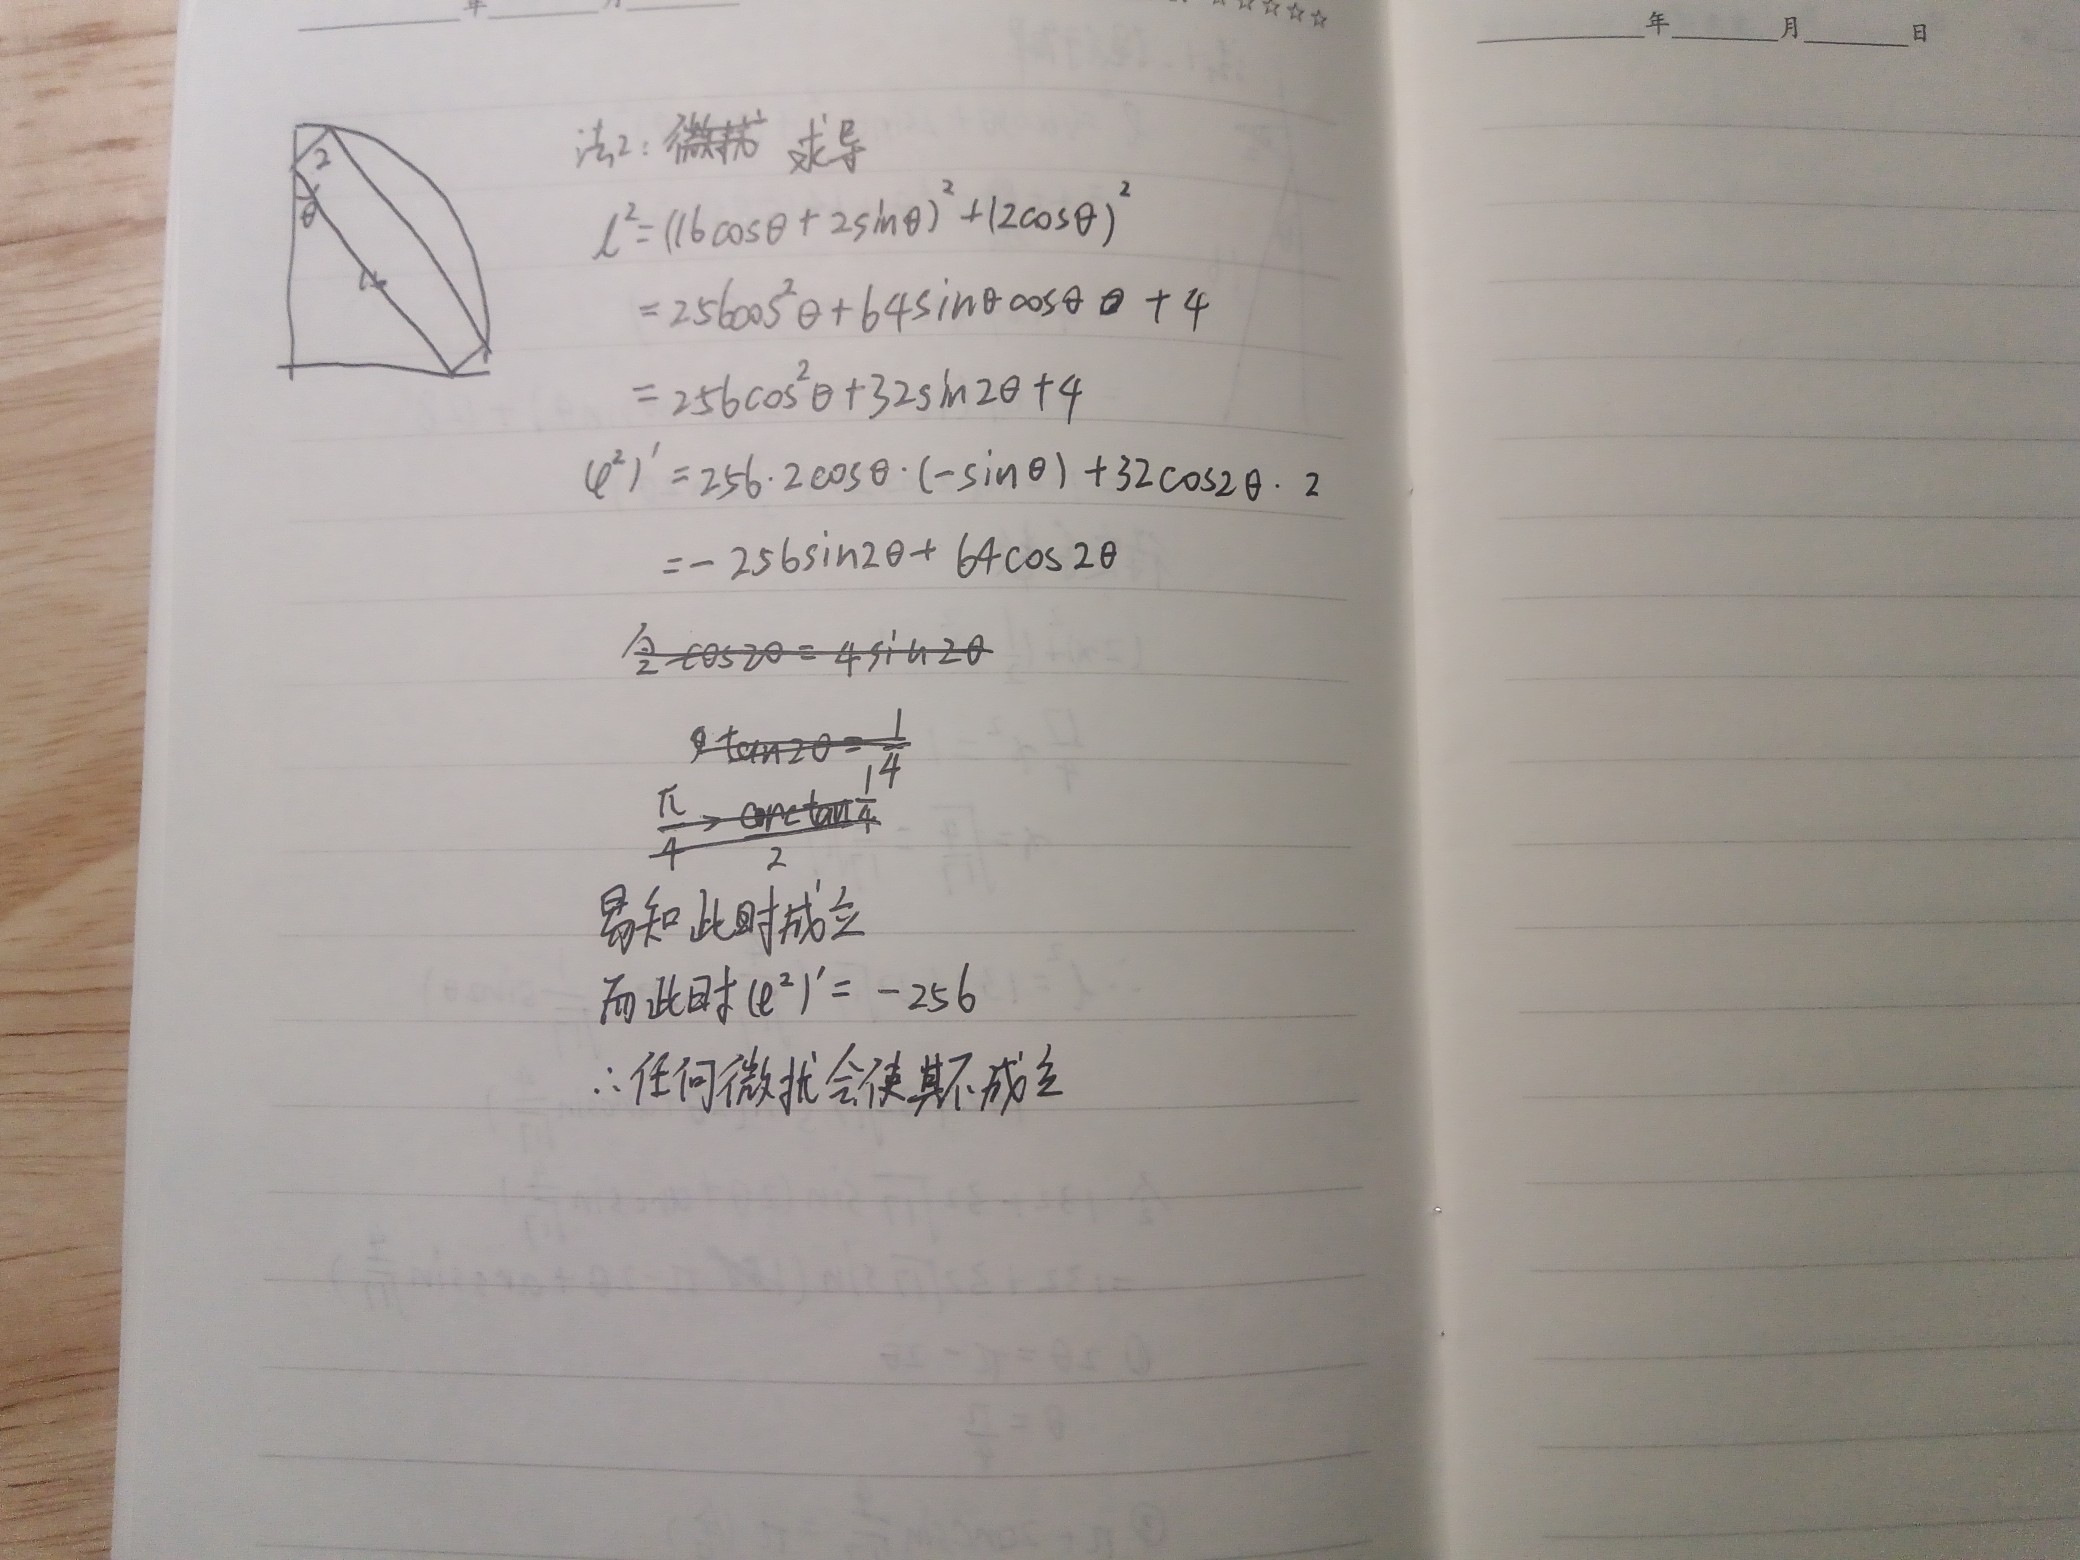 年 月
☆☆☆☆☆
年 月 日
2
θ
16
法2: 微扰 求导
l²=(16cosθ+2sinθ)²+(2cosθ)²
=256cos²θ+64sinθcosθ+4
=256cos²θ+32sin2θ+4
(l²)'=256·2cosθ·(-sinθ)+32cos2θ·2
=-256sin2θ+64cos2θ
令cos2θ=4sin2θ
tan2θ=1/4
π/4 > arctan1/4 / 2
易知此时成立
而此时(l²)'=-256
∴任何微扰会使其不成立